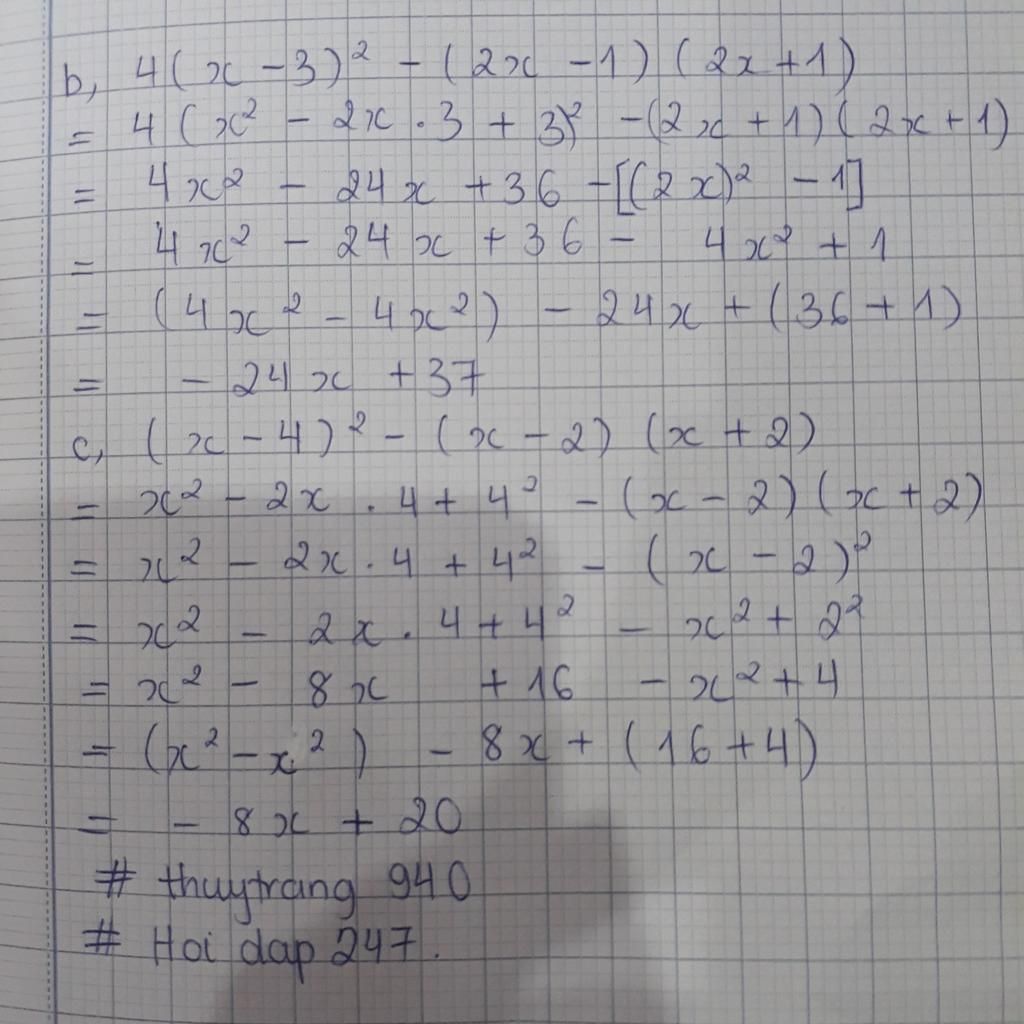 b, 4(x - 3)² - (2x - 1) (2x + 1)
= 4 (x² - 2x . 3 + 3)² - (2x + 1) (2x + 1)
= 4x² - 24x + 36 - [(2x)² - 1]
= 4x² - 24x + 36 - 4x² + 1
= (4x² - 4x²) - 24x + (36 + 1)
= - 24x + 37
c, (x - 4)² - (x - 2) (x + 2)
= x² - 2x . 4 + 4² - (x - 2) (x + 2)
= x² - 2x . 4 + 4² - (x - 2)²
= x² - 2x . 4 + 4² - x² + 2²
= x² - 8x + 16 - x² + 4
= (x² - x²) - 8x + (16 + 4)
= - 8x + 20
# thuytrang 940
# Hoi dap 247.